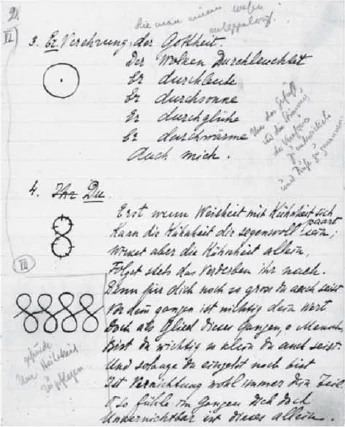 2
II
die man einem Wesen
entgegenbringt.
3. Er. Verehrung der Gottheit.
Der Wolken Durchleuchter
Er durchleuchte
Er durchsonne
Er durchglühe
Er durchwärme
Auch mich.
4. Ihr Du
Erst wenn Weisheit mit Kühnheit sich paart
Kann die Kühnheit dir segensvoll sein;
Wirket aber die Kühnheit allein,
Folget stets das Verderben ihr nach.
III
Denn für dich noch so gross du auch seist
Vor dem ganzen ist nichtig dein Wert
Doch als Glied dieses Ganzen, o Mensch,
Bist du wichtig so klein du auch seist.
Und solange du einzeln noch bist
Ist Vernichtung wohl immer dein Teil
So fühle im Ganzen dich doch
Unvernichtbar ist dieses allein.